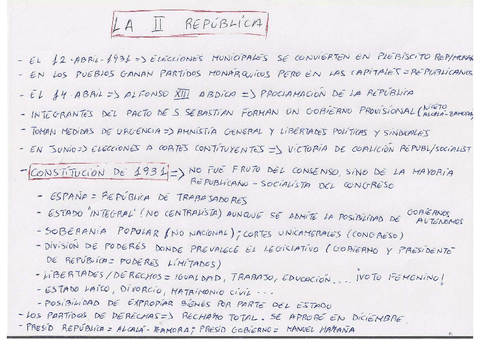 LA II REPÚBLICA
- EL 12-ABRIL-1931 => ELECCIONES MUNICIPALES SE CONVIERTEN EN PLEBISCITO REP/MONAR
- EN LOS PUEBLOS GANAN PARTIDOS MONÁRQUICOS PERO EN LAS CAPITALES = REPUBLICANOS
- EL 14 ABRIL => ALFONSO XIII ABDICA => PROCLAMACIÓN DE LA REPÚBLICA
- INTEGRANTES DEL PACTO DE S. SEBASTIAN FORMAN UN GOBIERNO PROVISIONAL (NICETO ALCALÁ-ZAMORA)
- TOMAN MEDIDAS DE URGENCIA => AMNISTÍA GENERAL Y LIBERTADES POLÍTICAS Y SINDICALES
- EN JUNIO => ELECCIONES A CORTES CONSTITUYENTES => VICTORIA DE COALICIÓN REPUBL/SOCIALIST
- CONSTITUCIÓN DE 1931 => NO FUÉ FRUTO DEL CONSENSO, SINO DE LA MAYORÍA
REPUBLICANO - SOCIALISTA DEL CONGRESO
- ESPAÑA = REPÚBLICA DE TRABAJADORES
- ESTADO "INTEGRAL" (NO CENTRALISTA) AUNQUE SE ADMITE LA POSIBILIDAD DE GOBIERNOS AUTÓNOMOS
- SOBERANÍA POPULAR (NO NACIONAL); CORTES UNICAMERALES (CONGRESO)
- DIVISIÓN DE PODERES DONDE PREVALECE EL LEGISLATIVO (GOBIERNO Y PRESIDENTE
DE REPÚBLICA = PODERES LIMITADOS)
- LIBERTADES/DERECHOS = IGUALDAD, TRABAJO, EDUCACIÓN... ¡VOTO FEMENINO!
- ESTADO LAICO, DIVORCIO, MATRIMONIO CIVIL...
- POSIBILIDAD DE EXPROPIAR BIENES POR PARTE DEL ESTADO
- LOS PARTIDOS DE DERECHAS => RECHAZO TOTAL. SE APROBÓ EN DICIEMBRE
- PRESID REPÚBLICA = ALCALÁ-ZAMORA; PRESID GOBIERNO = MANUEL